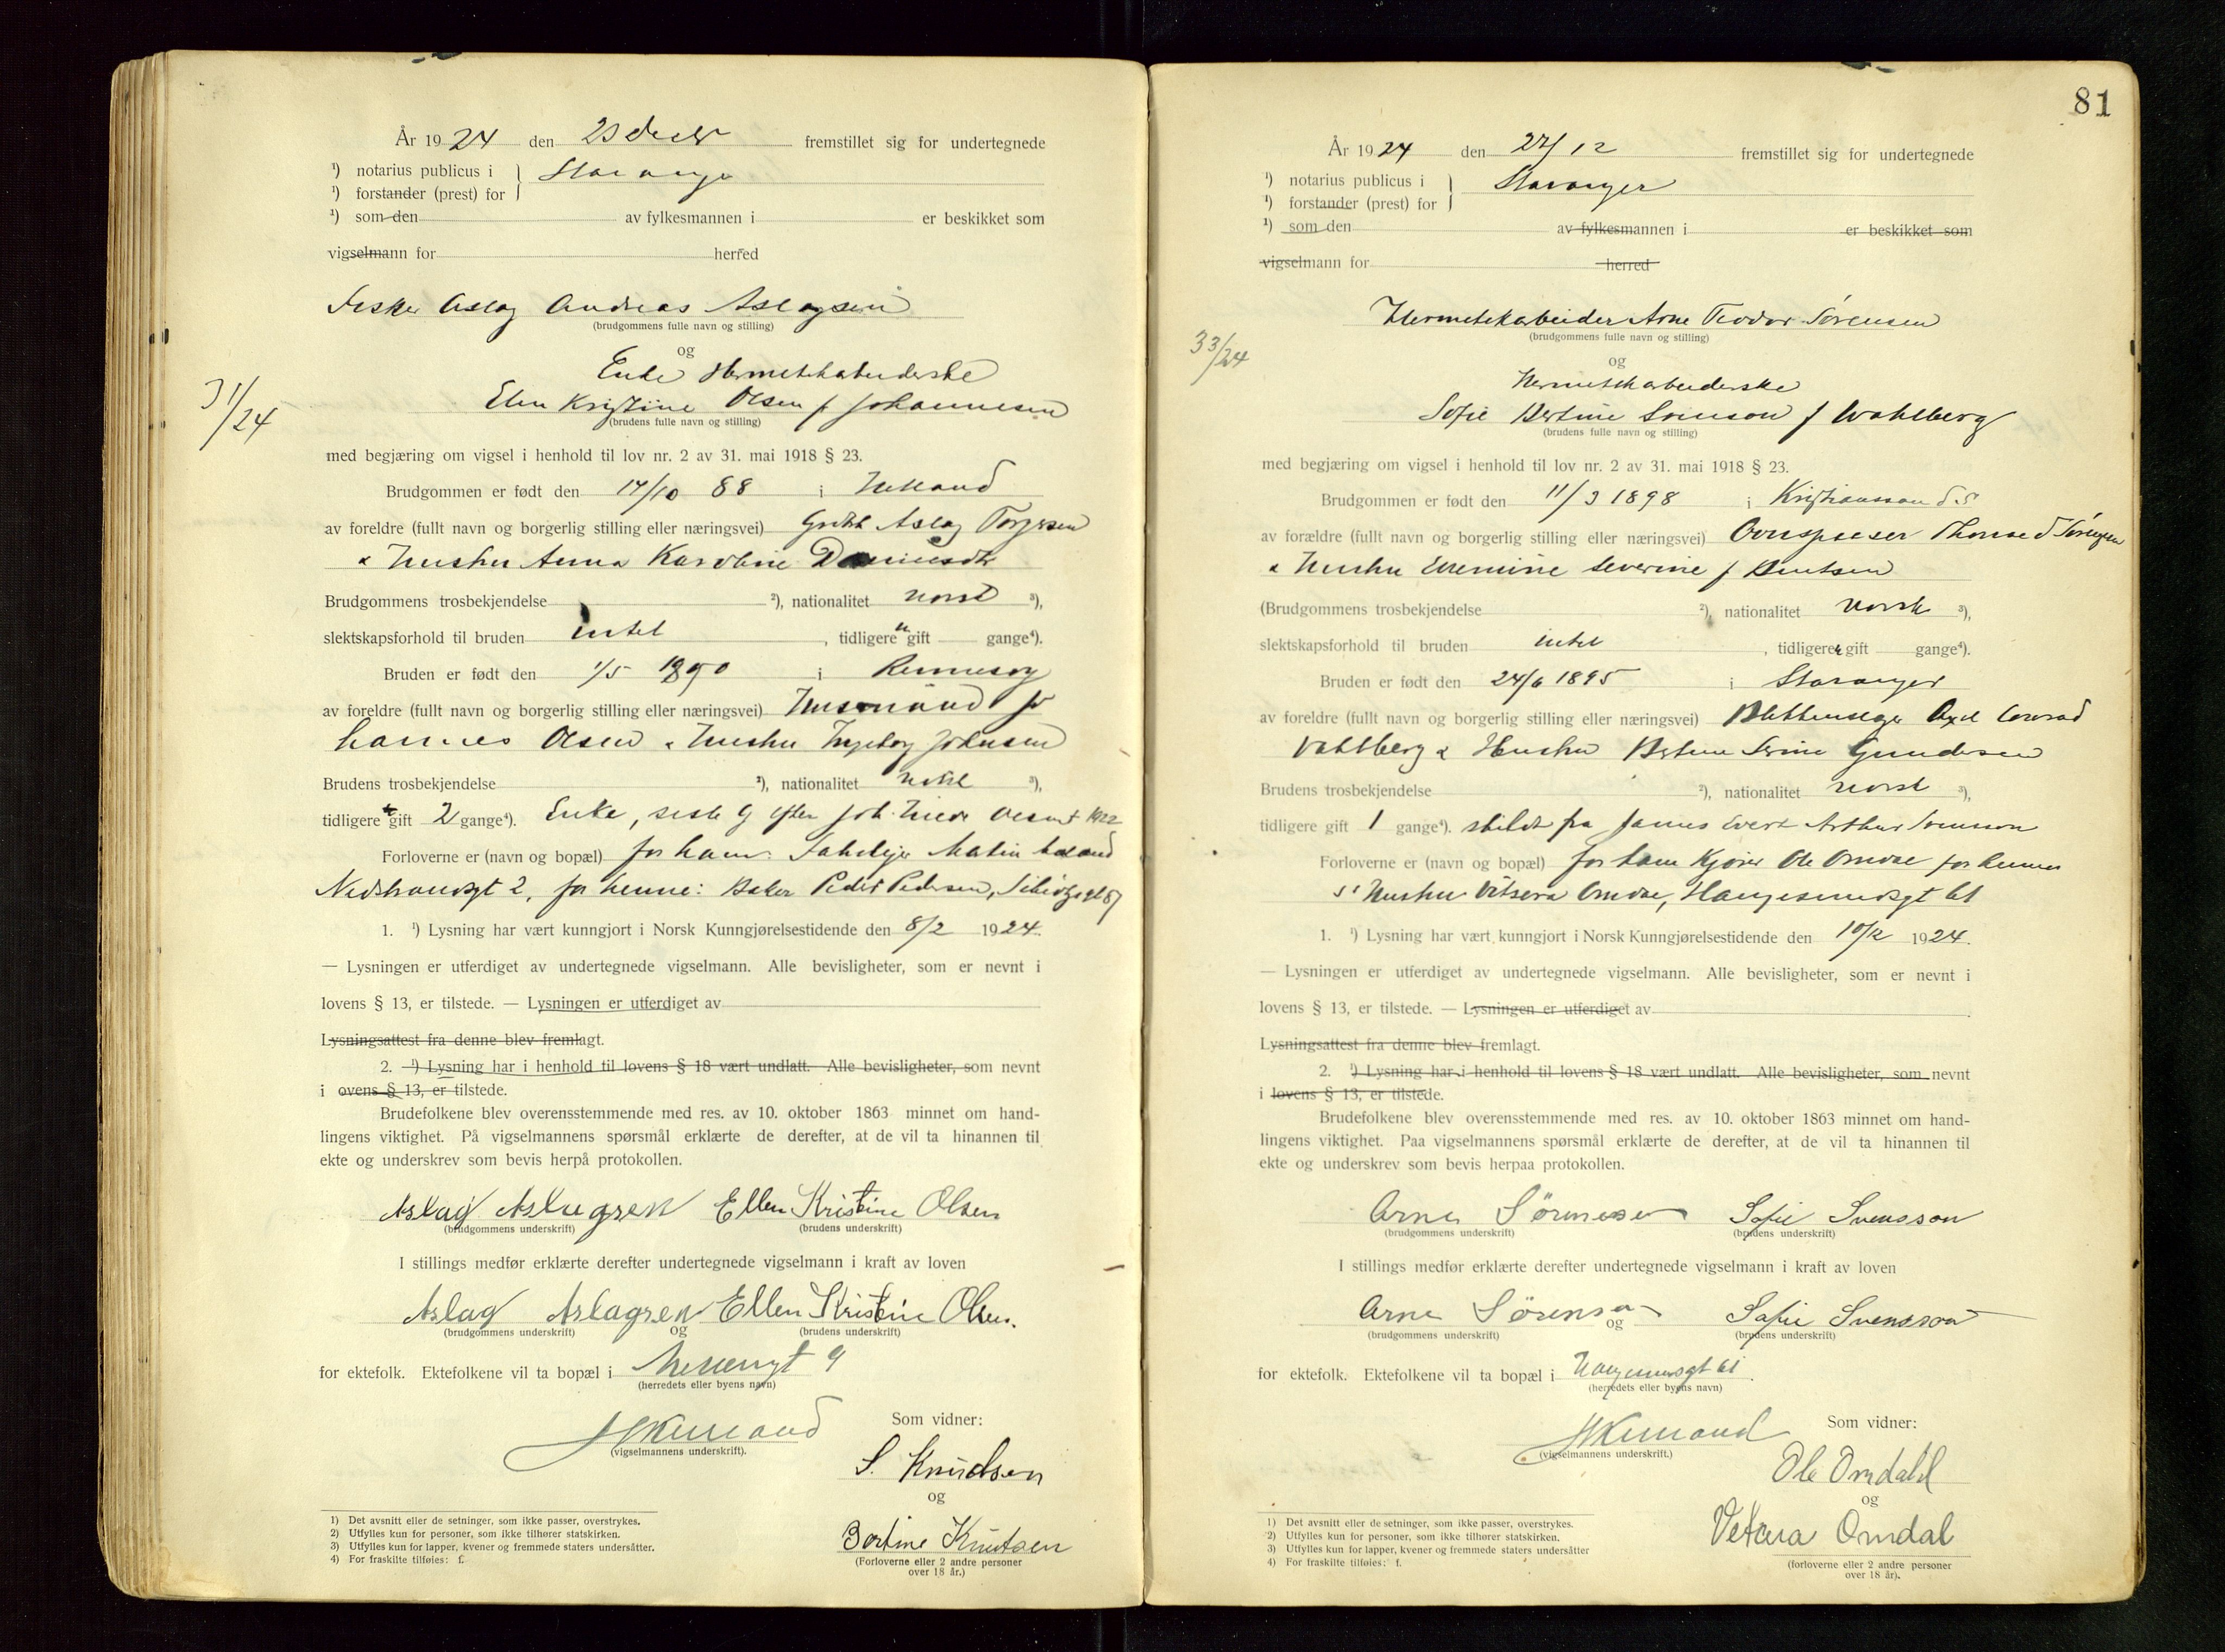 År 1924 den 23 decbr fremstillet sig for undertegnede
¹) notarius publicus i } Stavanger
¹) forstander (prest) for
¹) som den av fylkesmannen i er beskikket som
vigselmann for herred
Fisker Aslag Andreas Aslagsen
(brudgommens fulle navn og stilling)
og
Enke Hermetikarbeiderske
Elen Kristine Olsen f Johannesen
(brudens fulle navn og stilling)
31/24
med begjæring om vigsel i henhold til lov nr. 2 av 31. mai 1918 § 23.
Brudgommen er født den 14/10 88 i
av foreldre (fullt navn og borgerlig stilling eller næringsvei) Aslag Torgersen
& Hustru Anna Karoline
Brudgommens trosbekjendelse ²), nationalitet norsk ³),
slektskapsforhold til bruden intet, tidligere gift gange⁴).
Bruden er født den 1/5 1890 i Rennesøy
av foreldre (fullt navn og borgerlig stilling eller næringsvei) Husmand Jo
hannes Olsen & Hustru Ingeborg Johnsen
Brudens trosbekjendelse ²), nationalitet norsk ³),
tidligere gift 2 gange⁴). Enke, siste g efter Joh. 1922
Forloverne er (navn og bopæl) for ham: Martin
2, for henne: Baker Peder Pedersen, 87
1. ¹) Lysning har vært kunngjort i Norsk Kunngjørelsestidende den 8/2 1924.
— Lysningen er utferdiget av undertegnede vigselmann. Alle bevisligheter, som er nevnt i
lovens § 13, er tilstede. — Lysningen er utferdiget av
Lysningsattest fra denne blev fremlagt.
2. ¹) Lysning har i henhold til lovens § 18 vært undlatt. Alle bevisligheter, som nevnt
i ovens § 13, er tilstede.
Brudefolkene blev overensstemmende med res. av 10. oktober 1863 minnet om hand-
lingens viktighet. På vigselmannens spørsmål erklærte de derefter, at de vil ta hinannen til
ekte og underskrev som bevis herpå protokollen.
Aslag Aslagsen Ellen Kristine Olsen
(brudgommens underskrift) (brudens underskrift)
I stillings medfør erklærte derefter undertegnede vigselmann i kraft av loven
Aslag Aslagsen Ellen Kristine Olsen.
(brudgommens underskrift) og (brudens underskrift)
for ektefolk. Ektefolkene vil ta bopæl i 9
(herredets eller byens navn)
Som vidner:
(vigselmannens underskrift).
S. Knudsen
og
Bertine Knutsen
(Forloverne eller 2 andre personer
over 18 år.)
1) Det avsnitt eller de setninger, som ikke passer, overstrykes.
2) Utfylles kun for personer, som ikke tilhører statskirken.
3) Utfylles kun for lapper, kvener og fremmede staters undersåtter.
4) For fraskilte tilføies: f.
81
År 1924 den 27/12 fremstillet sig for undertegnede
¹) notarius publicus i } Stavanger
¹) forstander (prest) for
¹) som den av fylkesmannen i er beskikket som
vigselmann for herred
Hermetikarbeider Arne Teodor Sørensen
(brudgommens fulle navn og stilling)
33/24
og
Hermetikarbeiderske
Sofie Bertine Svenson f Wahlberg
(brudens fulle navn og stilling)
med begjæring om vigsel i henhold til lov nr. 2 av 31. mai 1918 § 23.
Brudgommen er født den 11/3 1898 i Kristianssand S
av forældre (fullt navn og borgerlig stilling eller næringsvei) Sørensen
& Hustru Severine f Bentsen
(Brudgommens trosbekjendelse ²), nationalitet norsk ³),
slektskapsforhold til bruden intet, tidligere gift gange⁴).
Bruden er født den 24/6 1895 i Stavanger
av foreldre (fullt navn og borgerlig stilling eller næringsvei) Axel Conrad
Vahlberg & Hustru Bertine Serine Gundersen
Brudens trosbekjendelse ²), nationalitet norsk ³),
tidligere gift 1 gange⁴). skildt fra James Evert Arthur Svensson
Forloverne er (navn og bopæl) for ham Kjører Ole Omdal for henne
s' Hustru Omdal, Haugesundsgt 61
1. ¹) Lysning har vært kunngjort i Norsk Kunngjørelsestidende den 10/12 1924.
— Lysningen er utferdiget av undertegnede vigselmann. Alle bevisligheter, som er nevnt i
lovens § 13, er tilstede. — Lysningen er utferdiget av
Lysningsattest fra denne blev fremlagt.
2. ¹) Lysning har i henhold til lovens § 18 vært undlatt. Alle bevisligheter, som nevnt
i lovens § 13, er tilstede.
Brudefolkene blev overensstemmende med res. av 10. oktober 1863 minnet om hand-
lingens viktighet. Paa vigselmannens spørsmål erklærte de derefter, at de vil ta hinannen til
ekte og underskrev som bevis herpaa protokollen.
Arne Sørensen Sofie Svensson
(brudgommens underskrift) (brudens underskrift)
I stillings medfør erklærte derefter undertegnede vigselmann i kraft av loven
Arne Sørensen Sofie Svensson
(brudgommens underskrift) og (brudens underskrift)
for ektefolk. Ektefolkene vil ta bopæl i Haugesundsgt 61.
(herredets eller byens navn)
Som vidner:
(vigselmannens underskrift.)
Ole Omdahl
og
Omdal
(forloverne eller 2 andre personer
over 18 år).
1) Det avsnitt eller de setninger, som ikke passer, overstrykes.
2) Utfylles kun for personer, som ikke tilhører statskirken.
3) Utfylles kun for lapper, kvener og fremmede staters undersåtter
4) For fraskilte tilføies: f.